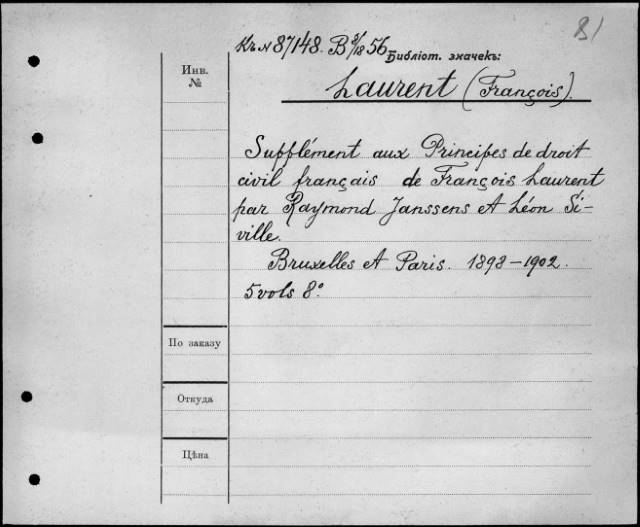 81
Къ N 87148. B 3/18 56 Библіот. значекъ:
Инв.
№
Laurent (François).
Supplément aux Principes de droit
civil français de François Laurent
par Raymond Janssens et Léon Si-
ville.
Bruxelles et Paris. 1898-1902.
5 vols 8º
По заказу
Откуда
Цѣна